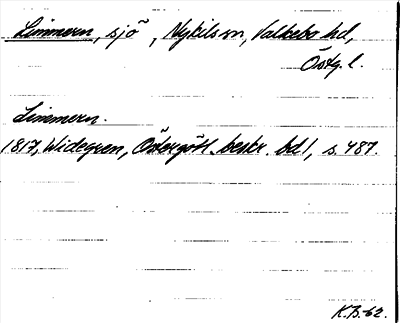 Limmern, sjö, Nykils sn, Valkebo hd,
Östg. l.
Limmern.
1817, Widegren, Östergötl. beskr. bd 1, s. 487.
K.B.-62.